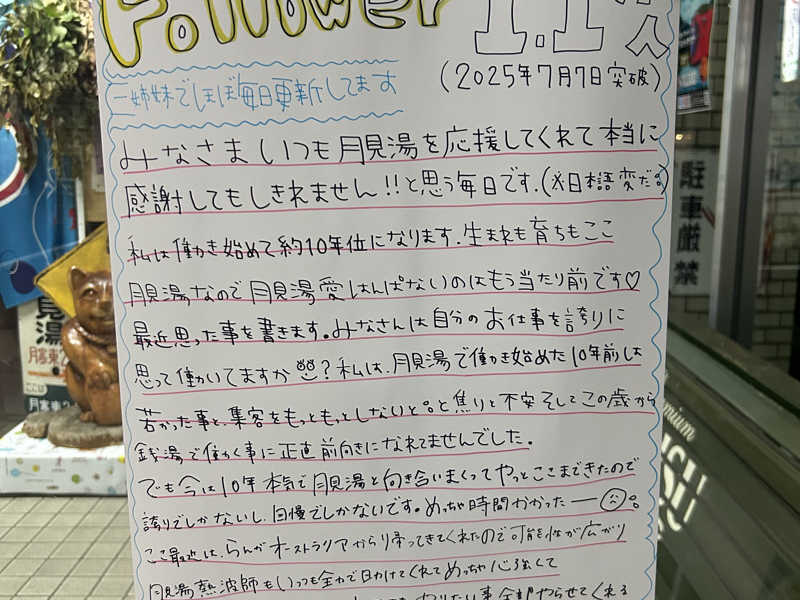 Follower 1.1万人
(2025年7月7日突破)
三姉妹でほぼ毎日更新してます
みなさまいつも月見湯を応援してくれて本当に
感謝してもしきれません!!と思う毎日です.(※日本語変だ
私は働き始めて約10年位になります.生まれも育ちもここ
月見湯なので月見湯愛はんぱないのはもう当たり前です♡
最近思った事を書きます。みなさんは自分のお仕事を誇りに
思って働いてますか?私は、月見湯で働き始めた10年前は
若かった事と、集客をもっともっとしないと。と焦りと不安そしてこの歳から
銭湯で働く事に正直前向きになれてませんでした.
でも今は10年本気で月見湯と向き合いまくってやっとここまできたので
誇りでしかないし、自慢でしかないです。めっちゃ時間かかったー。
ここ最近は、らんがオーストラリアから帰ってきてくれたので可能性が広がり
月見湯熱波師もいつも全力で日かけてくれてめっちゃ心強くて
やりたい事全部やらせてくれる
駐車厳禁